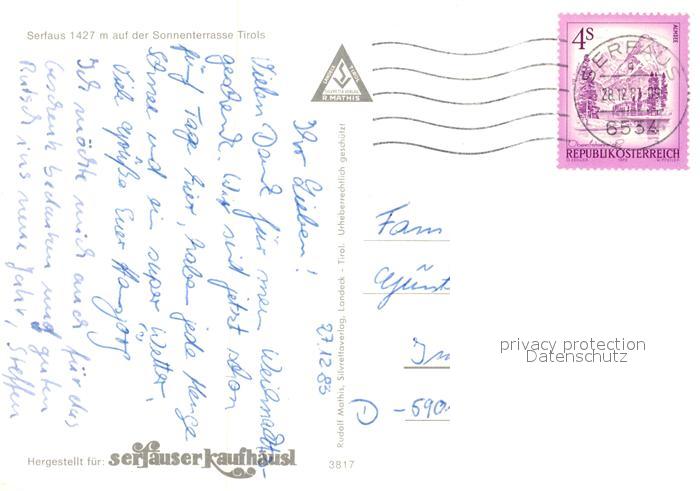 Serfaus 1427 m auf der Sonnenterrasse Tirols
4S
ALMSEE
SERFAUS
28.12.83-09
6534
REPUBLIK ÖSTERREICH
R MATHIS
27.12.83
Ihr Lieben!
Vielen Dank für mein Weihnachts-
geschenk. Wir sind jetzt schon
fünf Tage hier, haben jede Menge
Schnee und ein super Wetter.
Viele Grüße Euer Hansjörg
Ich möchte mich auch für das
Geschenk bedanken und guten
Rutsch ins neue Jahr, Steffen
Fam
Günt
D -590
privacy protection
Datenschutz
Rudolf Mathis, Silvrettaverlag, Landeck - Tirol. Urheberrechtlich geschützt!
Hergestellt für: serfauser kaufhäusl
3817